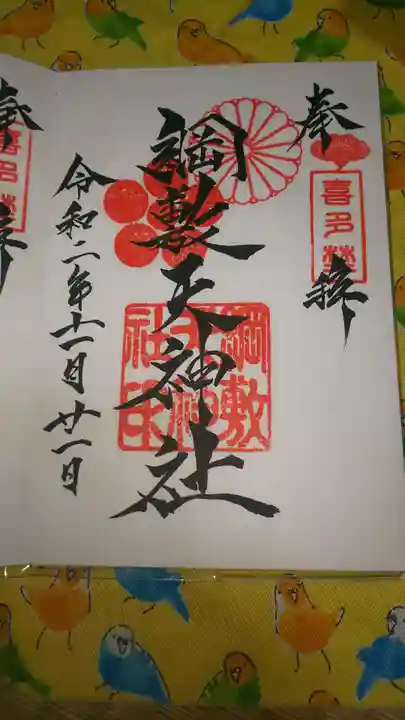 奉拝
喜多埜
綱敷天神社
綱敷天神社印
令和二年十一月廿一日
奉拝
喜多埜